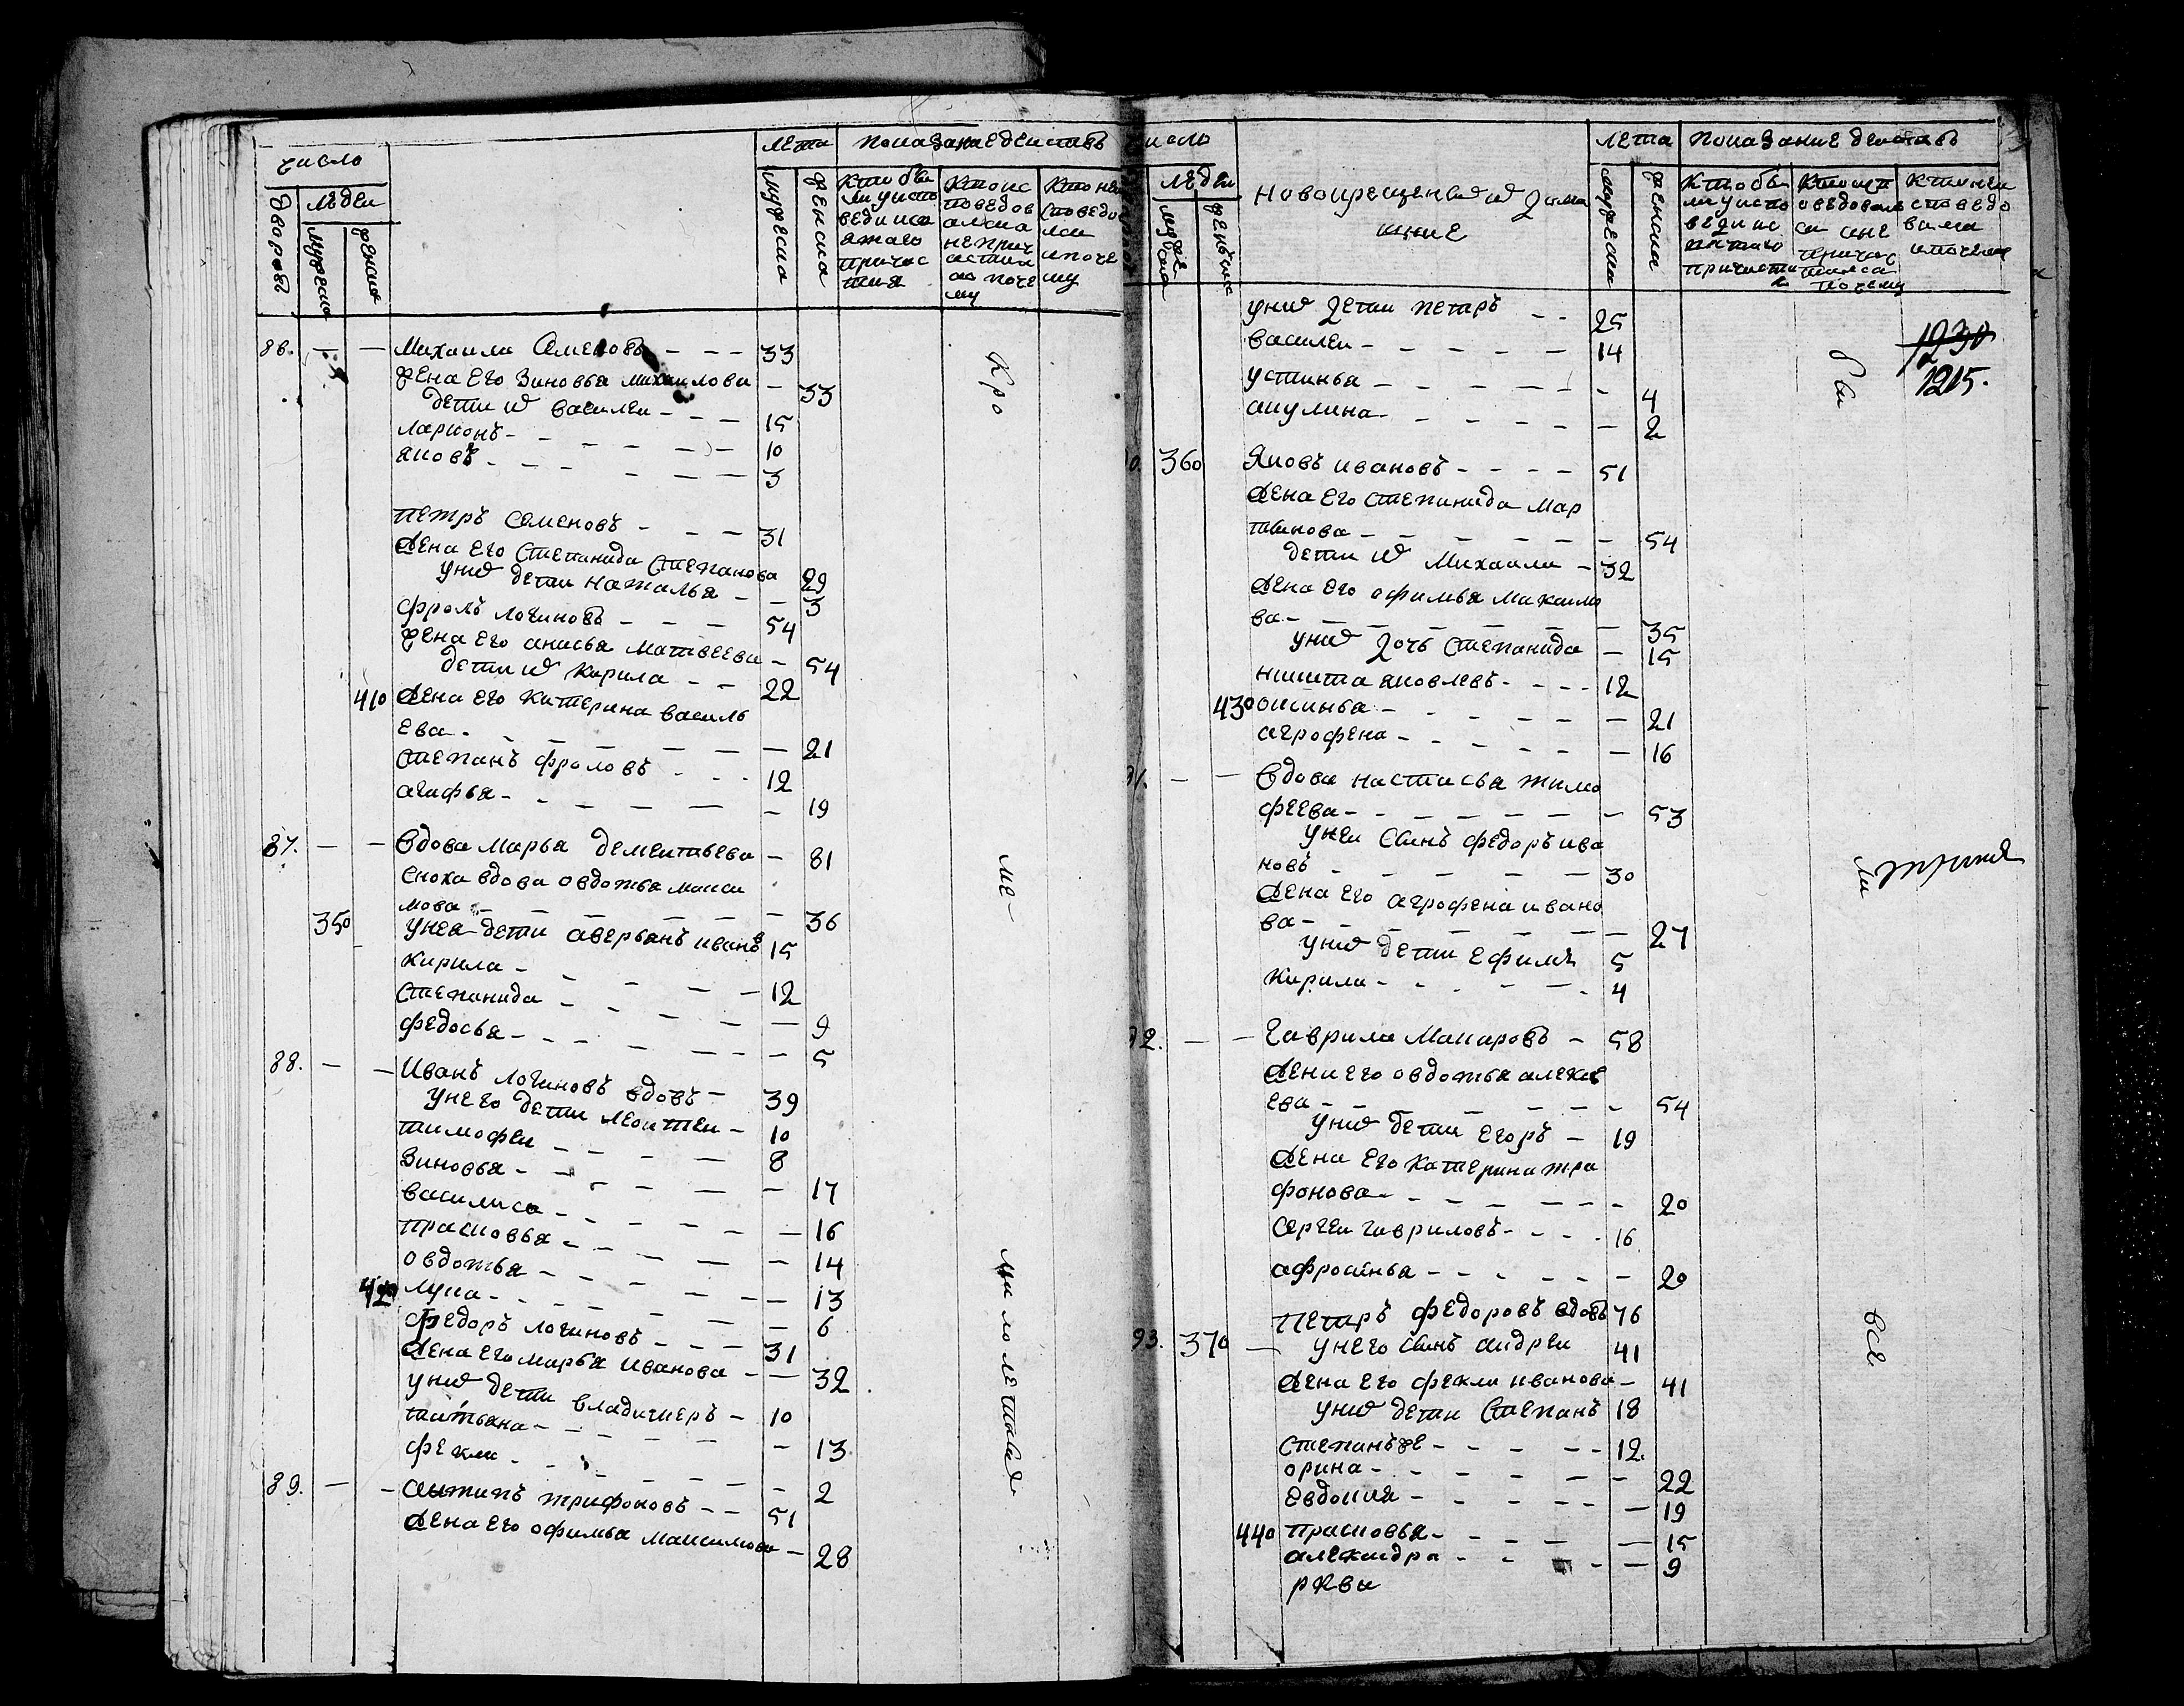 число
лета
показание действъ
дворовъ
людеи
мужеска
женска
мужеска
женска
кто были у испо
веди и св
ятаго
причас
тия
кто ис
поведов
ался а
не прич
астил
ся поче
му
кто не
споведо
лся
и поче
му
86. — — Михаила Семеновъ - - - 33
жена его Зиновья Михаилова - 33
дети их Василеи - - - 15
Ларионъ - - - - - 10
Яковъ - - - - - - 3
Петръ Семеновъ - - - 31
жена его Степанида Степанова 29
у них дети Наталья - - 3
Фролъ Логиновъ - - - 54
жена его Анисья Матвеева - 54
дети их Кирила - - 22
410 жена его Катерина Василь
ева - - - - - - 21
Степанъ Фроловъ - - - 12
Агафья - - - - - - 19
87. — — Вдова Марья Дементьева - 81
сноха вдова Овдотья Макси
мова - - - - - - 36
350 у нея дети Аверьянъ Ивановъ 15
Кирила - - - - - 12
Степанида - - - - - - 9
Федосья - - - - - - - 5
88. — — Иванъ Логиновъ вдовъ - 39
у него дети Леонтеи - 10
Тимофеи - - - - 8
Зиновья - - - - - - 17
Василиса - - - - - - 16
Прасковья - - - - - - 14
Овдотья - - - - - - 13
420 Лукия - - - - - - 6
Федоръ Логиновъ - - - 31
жена его Марья Иванова - - 32
у них дети Владимеръ - 10
Татьяна - - - - - - 13
Фекла - - - - - - - 2
89. — - Антипъ Трифоновъ - - 51
жена его Офимья Максимова - 28
Кро
ме
малолетных
число
людеи
мужеска
женска
новокрещеныя их дома
шние
лета
мужеска
женска
показание действъ
кто был
и у испо
веди и с
вятаго
причасти
я
кто исп
оведовал
ся а не
причас
тился
почему
кто не и
споведо
вался
и почему
у них дети Петръ - - 25
1230
Василеи - - - - - 14
1215.
Устинья - - - - - - 4
Акулина - - - - - - 2
0. 360 Яковъ Ивановъ - - - - 51
жена его Степанида Мар
тынова - - - - - - - 54
дети их Михаила - 32
жена его Офимья Михаило
ва - - - - - - - 35
у них дочь Степанида - 15
Никита Яковлевъ - - - - 12
430 Оксинья - - - - - - 21
Агрофена - - - - - - 16
91. — — Вдова Настасья Тимо
феева - - - - - - - 53
у неи сынъ Федоръ Ива
новъ - - - - - 30
жена его Агрофена Ивано
ва - - - - - - - 27
у них дети Ефимъ 5
Кирила - - - - - - 4
92. — — Гаврила Макаровъ - 58
жена его Овдотья Алекс
ева - - - - - - - 54
у них дети Егоръ - 19
жена его Катерина Три
фонова - - - - - - - 20
Сергеи Гавриловъ - - - - 16
Афросинья - - - - - - - 20
Петръ Федоровъ вдовъ 76
93. 370 — у него сынъ Андреи 41
жена его Фекла Иванова - 41
у них дети Степанъ 18
Степанъ же - - - - - 12.
Орина - - - - - - 22
Евдокия - - - - - - 19
440 Прасковья - - - - - 15
Александра - - - - - 9
бы
ли
все